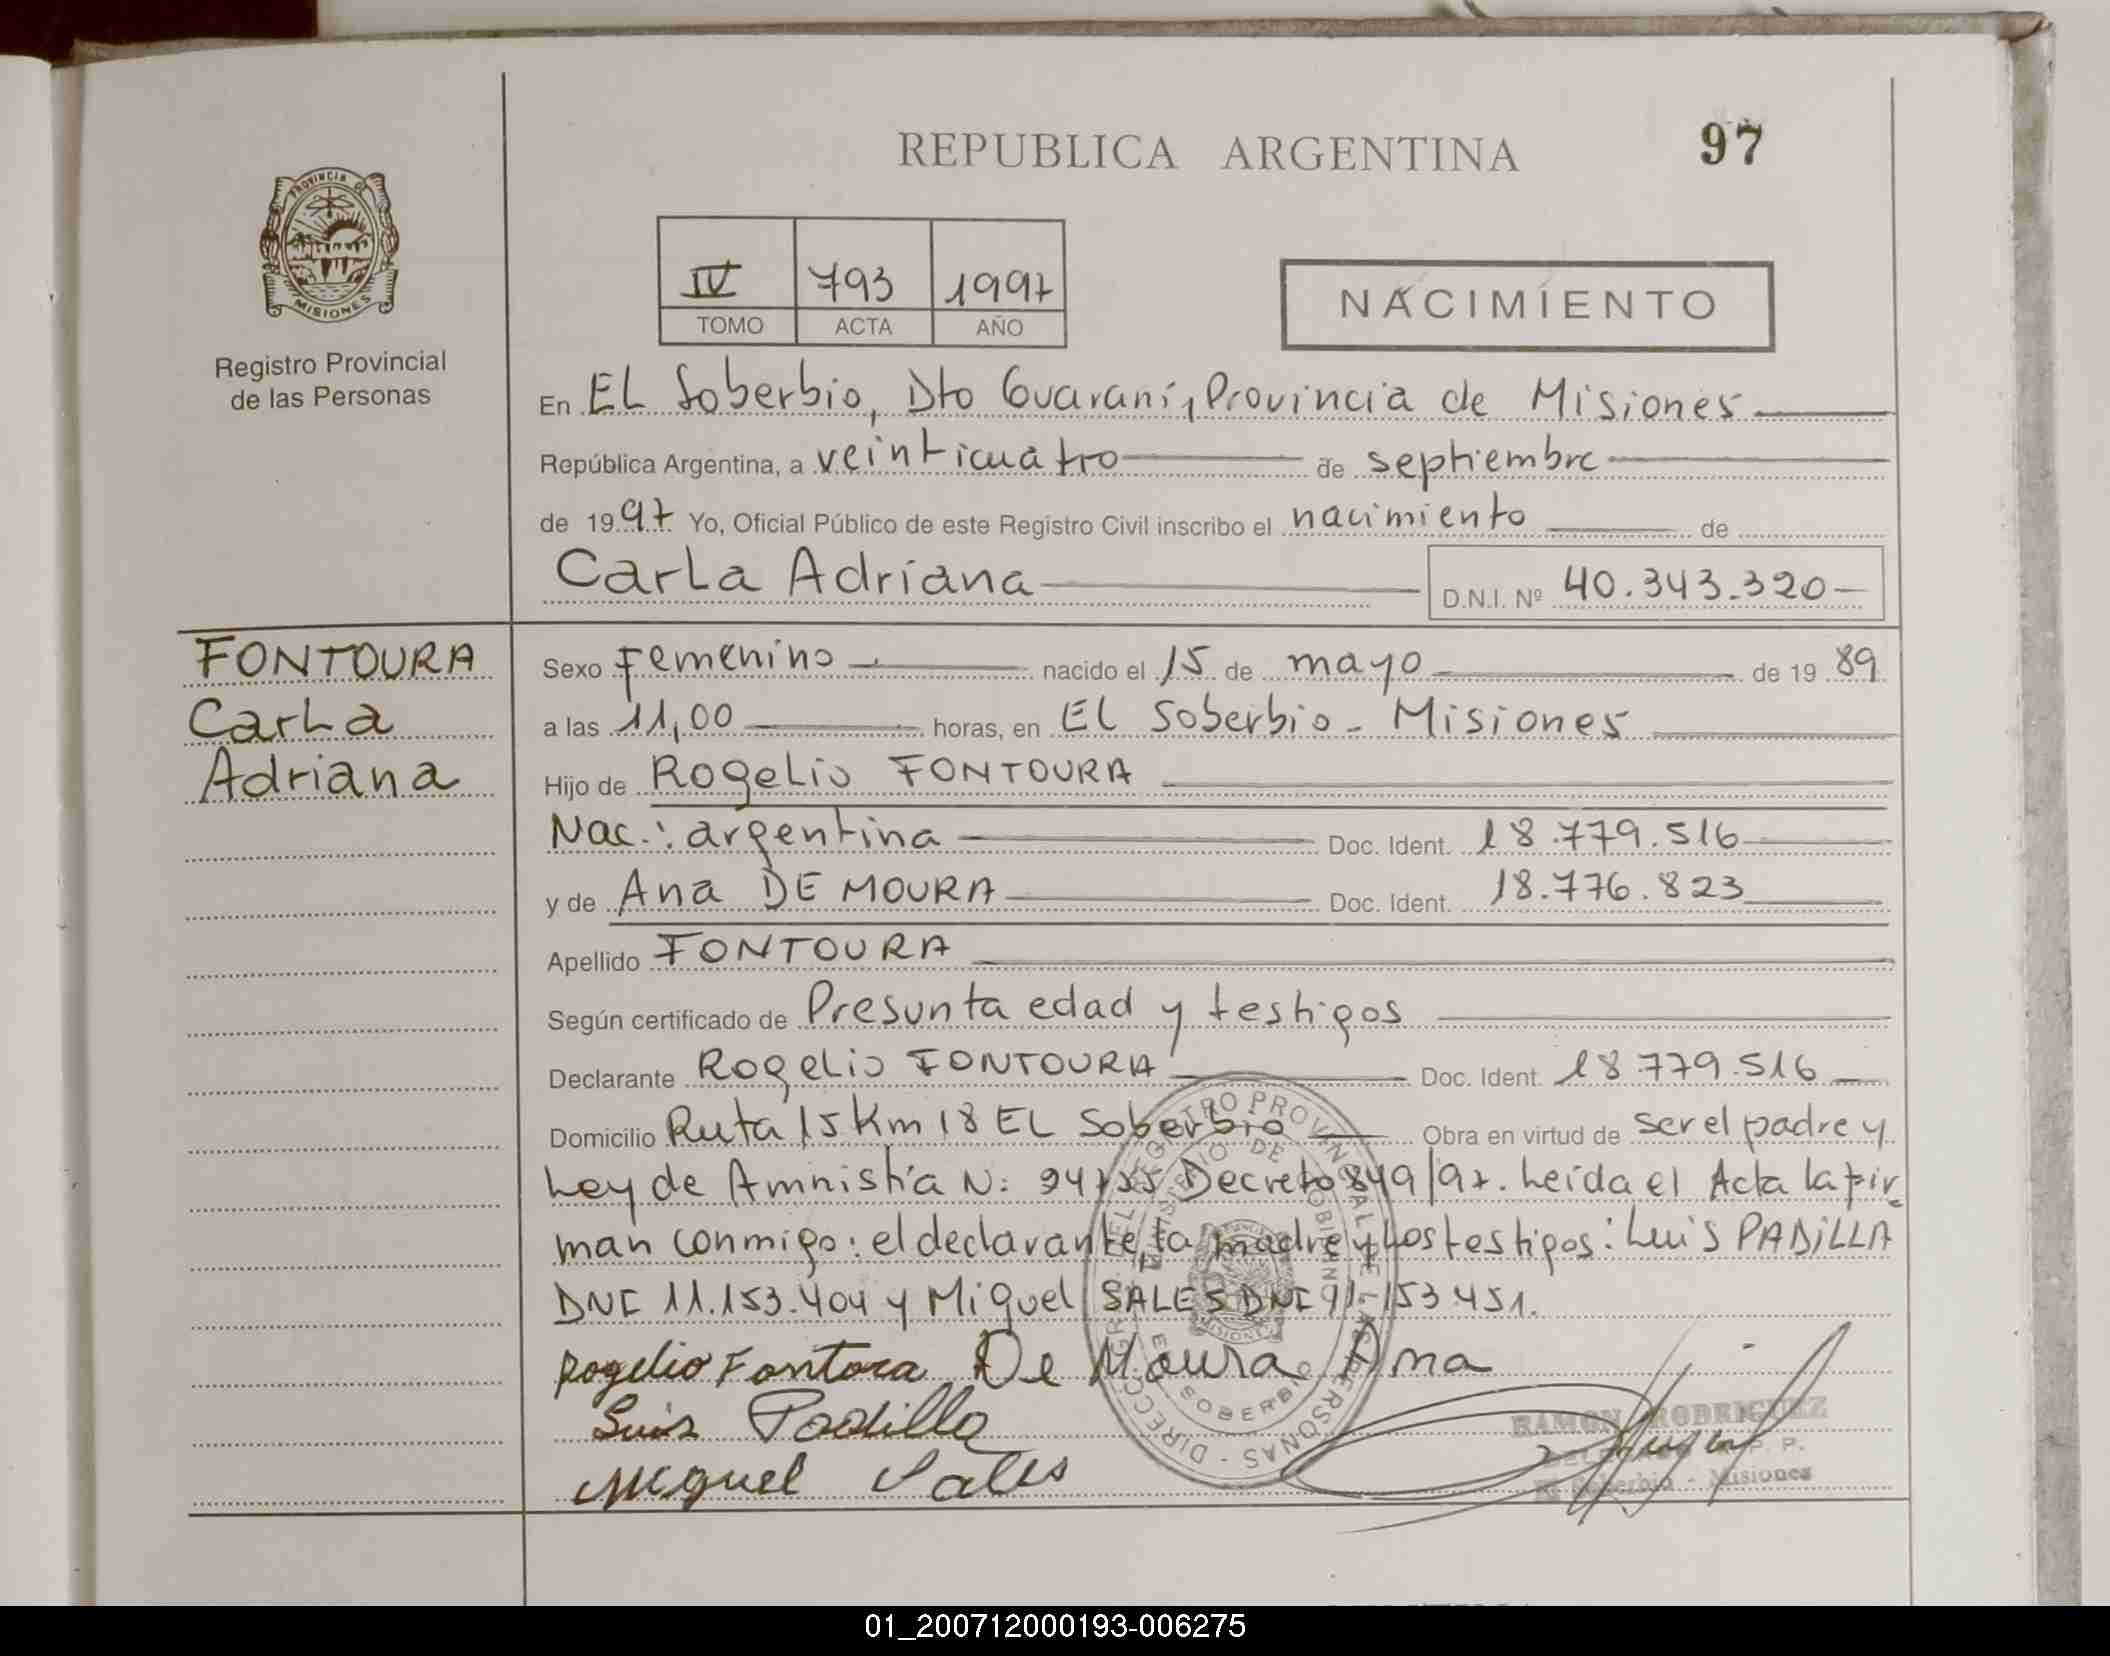 REPUBLICA ARGENTINA
97
PROVINCIA DE
MISIONES
Registro Provincial
de las Personas
IV 793 1997
TOMO ACTA AÑO
NACIMIENTO
En EL Soberbio, Dto Guaraní, Provincia de Misiones
República Argentina, a veinticuatro de septiembre
de 1997 Yo, Oficial Público de este Registro Civil inscribo el nacimiento de
Carla Adriana D.N.I. Nº 40.343.320
FONTOURA
Carla
Adriana
Sexo Femenino nacido el 15 de mayo de 1989
a las 11,00 horas, en El Soberbio - Misiones
Hijo de Rogelio FONTOURA
Nac.: argentina Doc. Ident. 18.779.516
y de Ana DE MOURA Doc. Ident. 18.776.823
Apellido FONTOURA
Según certificado de Presunta edad y testigos
Declarante Rogelio FONTOURA Doc. Ident. 18.779.516
Domicilio Ruta 15 Km 18 EL Soberbio Obra en virtud de ser el padre y
Ley de Amnistía N: Decreto 849/97. Leída el Acta la fir
man conmigo: el declarante, la madre y los testigos: Luis PADILLA
DNI 11.153.404 y Miguel SALES DNI 11.153.451.
Rogelio Fontora De Moura Ana
Luis Padilla
Miguel Sales
RAMON RODRIGUEZ
El Soberbio - Misiones
DIRECC. GRAL. DEL REGISTRO PROVINCIAL DE LAS PERSONAS
MINISTERIO DE GOBIERNO
EL SOBERBIO
01_200712000193-006275